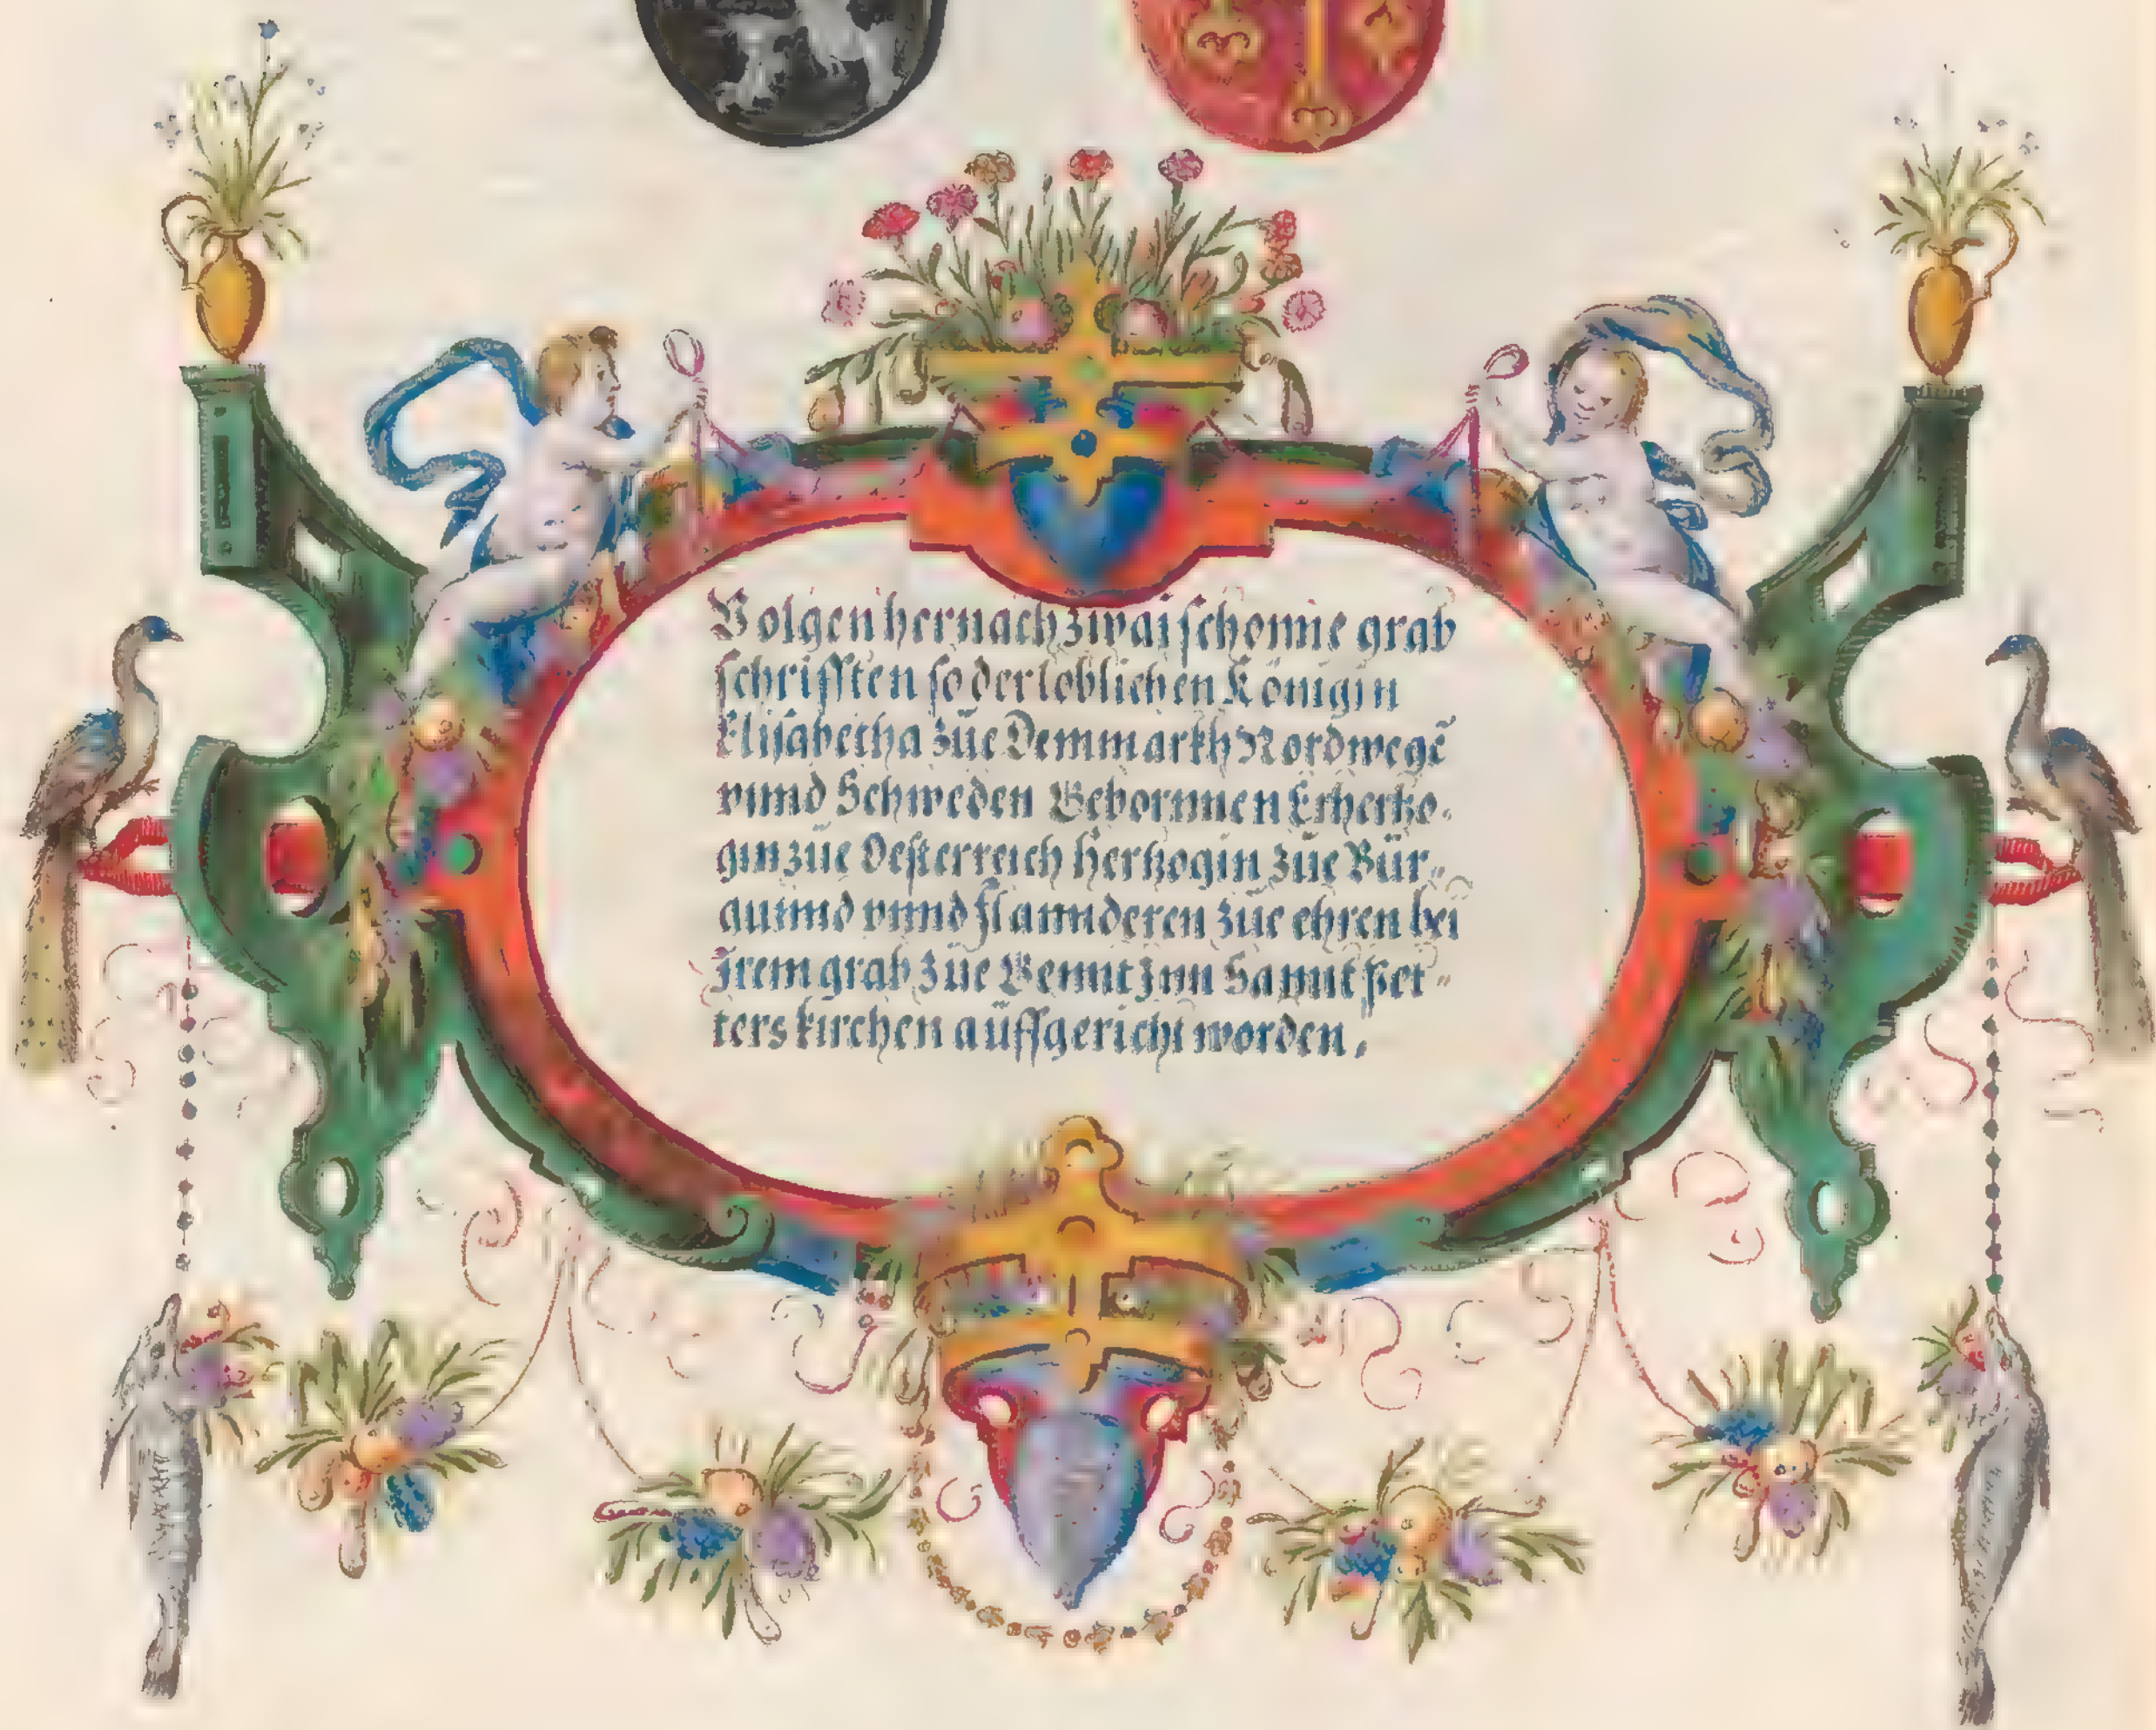 Volgen hernach zwai schonne grab
schrifften so der loblichen Königin
Elisabetha züe Demmarkh Nordwegē
vnnd Schweden Gebornnen Ertzhertzo-
gin züe Oesterreich Hertzogin züe Bür-
gunnd vnnd Flannderen züe ehren bei
Irem grab züe Gennt Inn Sannt Pet-
ters kirchen aüffgericht worden.